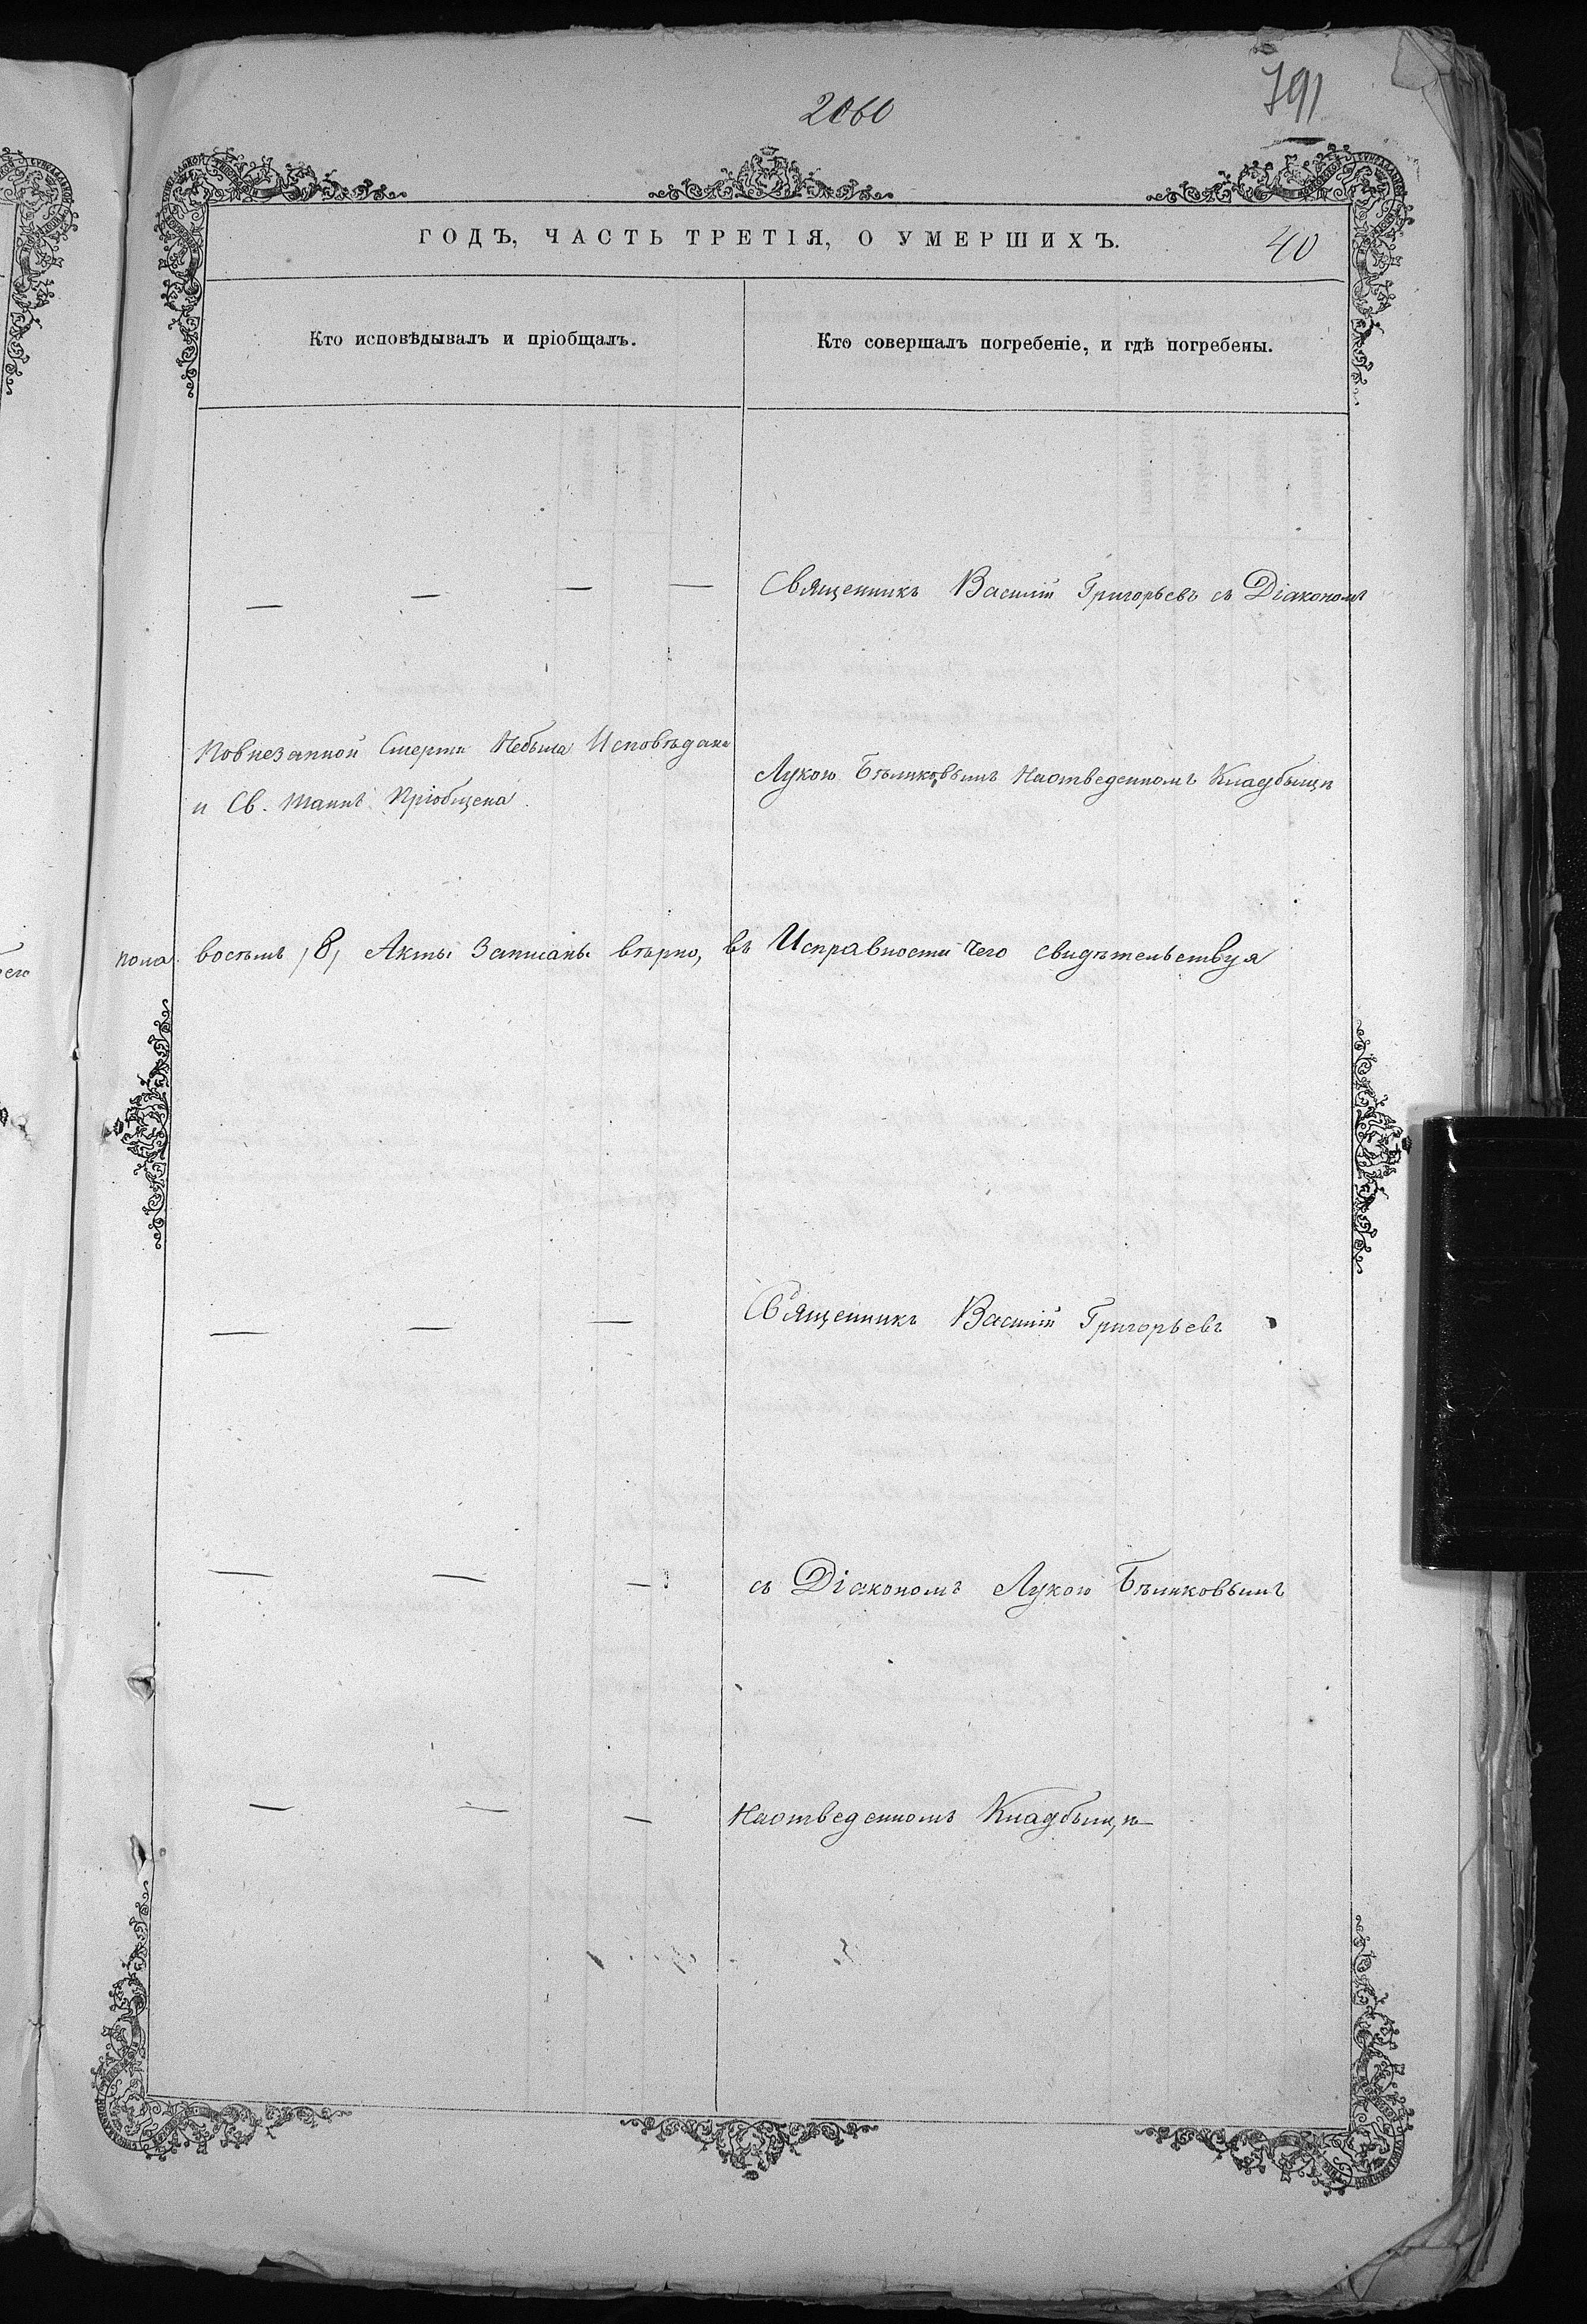 2060
791
ГОДЪ, ЧАСТЬ ТРЕТІЯ, О УМЕРШИХЪ.
40
Кто исповѣдывалъ и пріобщалъ.
Кто совершалъ погребеніе, и гдѣ погребены.
— — — —
Священникъ Василій Григорьевъ съ Діакономъ
Повнезапной Смерти Небыла Исповѣдана
и Св. Таинъ Пріобщена
Лукою Бѣликовымъ Наотведенномъ Кладбыщѣ
пола восѣмъ /8/ Акты Записаны вѣрно, въ Исправности чего свидѣтельствуя
— — —
Священникъ Василій Григорьевъ
— — —
съ Діакономъ Лукою Бѣликовымъ
— — —
Наотведенномъ Кладбыщѣ